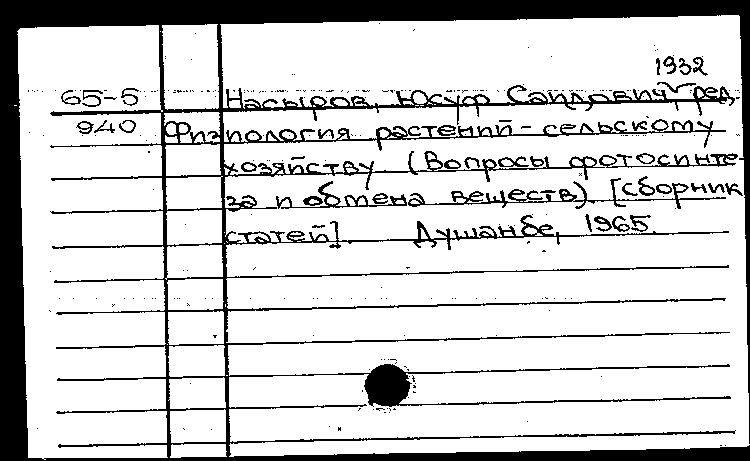 1932
65-5 Насыров, Юсуф Саидович, ред.
940 Физиология растений - сельскому
хозяйству (Вопросы фотосинте-
за и обмена веществ). [сборник
статей]. Душанбе, 1965.